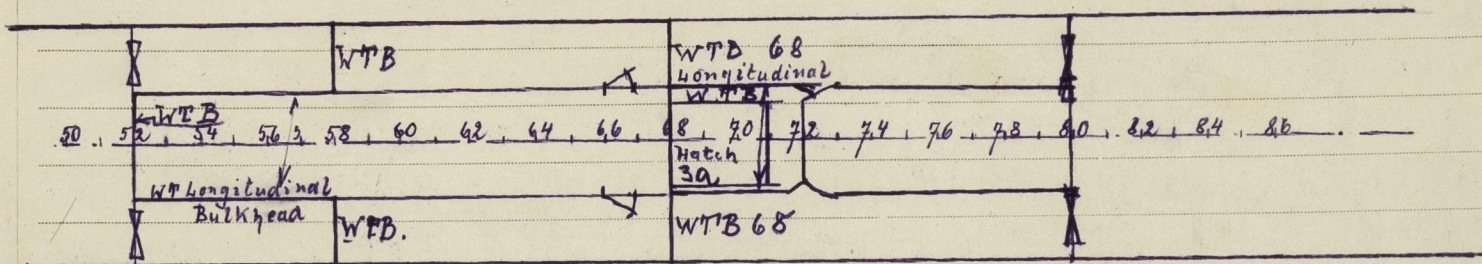 WTB
WTB 68
Longitudinal
WTB
WTB
50 52 54 56 58 60 62 64 66 68 70 72 74 76 78 80 82 84 86
Hatch
3a
WT Longitudinal
Bulkhead
WTB.
WTB 68